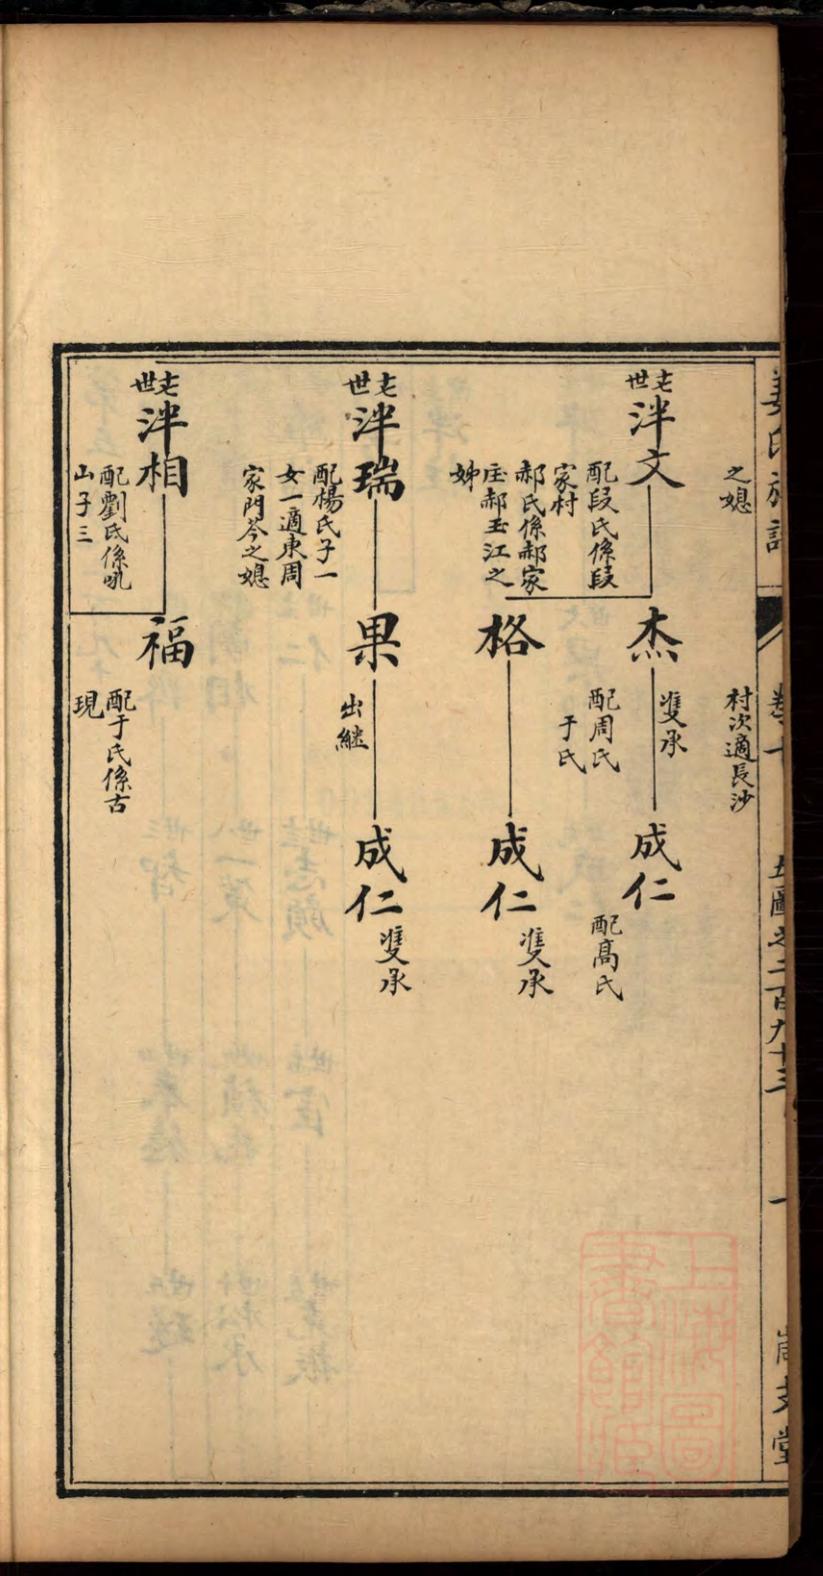 姜氏族譜
卷十
五圖之二百九十三
一
崗文堂
之媳
村次適長沙
世 泮文
配段氏係段
家村
郝氏係郝家
庄郝玉江之
姊
杰
雙承
配周氏
于氏
成仁
配高氏
格
成仁
雙承
世 泮瑞
配楊氏子一
女一適東周
家門岑之媳
果
出繼
成仁
雙承
世 泮相
配劉氏係吼
山子三
福
配于氏係古
現